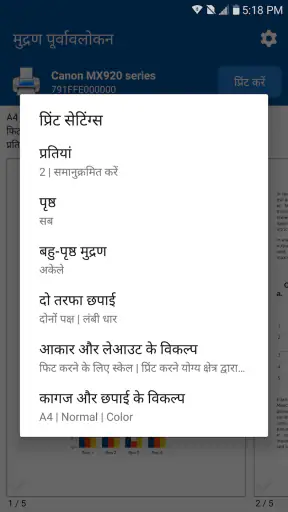 5:18 PM
मुद्रण पूर्वावलोकन
Canon MX920 series
791FFE000000
प्रिंट करें
A4
प्रिंट सेटिंग्स
प्रतियां
2 | समानुक्रमित करें
पृष्ठ
सब
बहु-पृष्ठ मुद्रण
अकेले
दो तरफा छपाई
दोनों पक्ष | लंबी धार
आकार और लेआउट के विकल्प
फिट करने के लिए स्केल | प्रिंट करने योग्य क्षेत्र द्वारा...
कागज और छपाई के विकल्प
A4 | Normal | Color
1 / 5
2 / 5